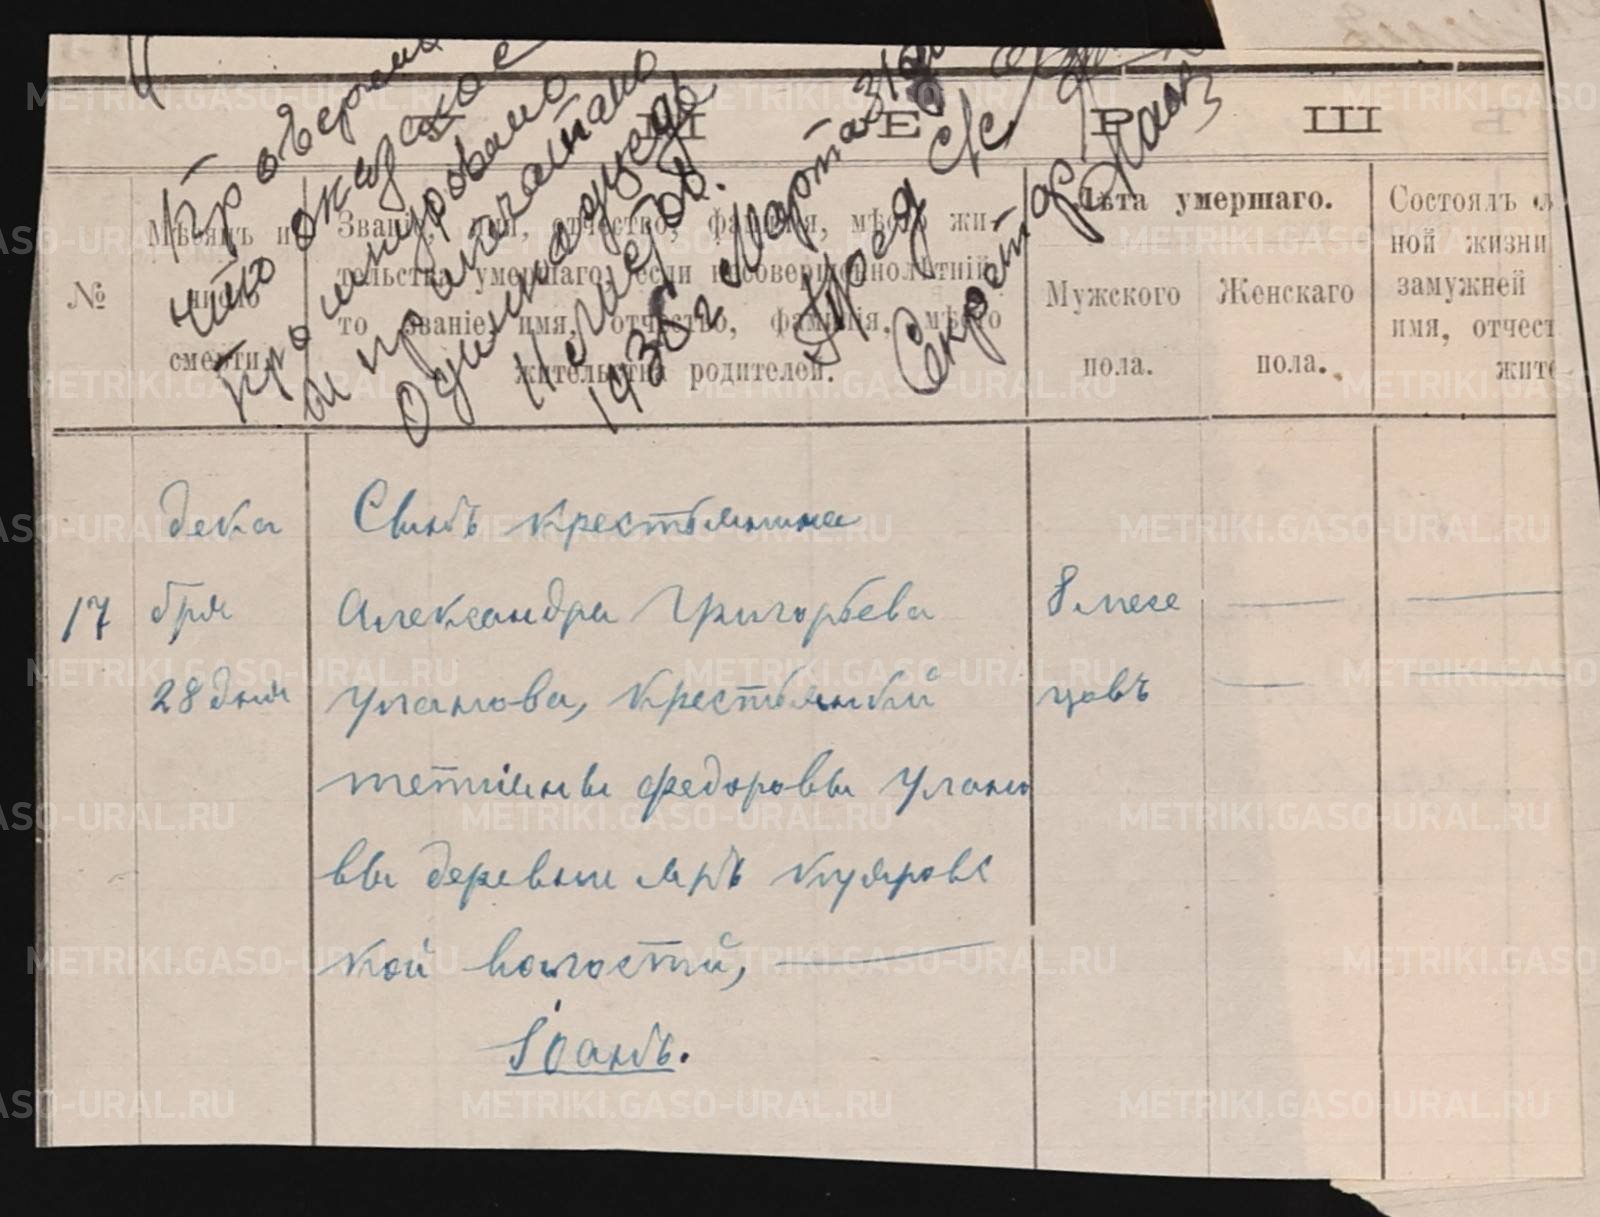 Проверено
что оказалось
пронумеровано
и припечатано
одиннадцать
11 листов.
1938 г Марта 31 дня
Пред с/с
Секретарь
III Е Р III
№
Мѣсяцъ и
число
смерти.
Званіе, имя, отчество, фамилія, мѣсто жи-
тельства умершаго; если несовершеннолѣтній,
то званіе, имя, отчество, фамилія, мѣсто
жительства родителей.
Лѣта умершаго.
Мужского
пола.
Женскаго
пола.
Состоялъ
ной жизни
замужней
имя, отчест
жите
17
дека
бря
28 дня
Сынъ крестьянина
Александра Григорьева
Уланова, крестьянкй
тетияны федоровы Улано
вы деревни яръ куяровс
кой волостий,
Іоанъ.
8 месе
цовъ
METRIKI.GASO-URAL.RU